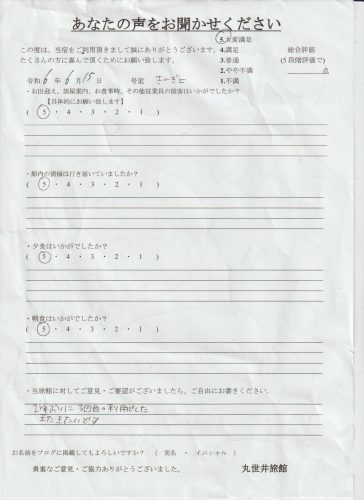 あなたの声をお聞かせください
5.大変満足
この度は、当宿をご利用頂きまして誠にありがとうございます。 4.満足 総合評価
たくさんの方に喜んで頂くためにお願い致します。 3.普通 (5段階評価で)
2.やや不満 点
令和 6年 6月 15日 号室 1.不満
・お出迎え、部屋案内、お食事時、その他従業員の接客はいかがでしたか？
【具体的にお願い致します】
( 5 ・ 4 ・ 3 ・ 2 ・ 1 )
・館内の清掃は行き届いていましたか？
( 5 ・ 4 ・ 3 ・ 2 ・ 1 )
・夕食はいかがでしたか？
( 5 ・ 4 ・ 3 ・ 2 ・ 1 )
・朝食はいかがでしたか？
( 5 ・ 4 ・ 3 ・ 2 ・ 1 )
・当旅館に対してご意見・ご要望がございましたら、ご自由にお書きください。
ひさぶりに 3回目の利用でした
またきたいです
お名前をブログに掲載してもよろしいですか？ ( 実名 ・ イニシャル )
貴重なご意見・ご協力ありがとうございました。 丸世井旅館